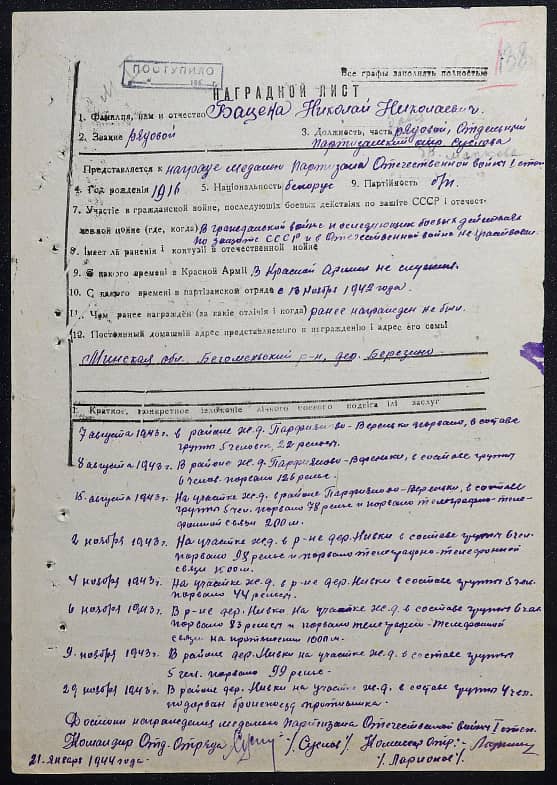 138
ПОСТУПИЛО
Все графы заполнять полностью
НАГРАДНОЙ ЛИСТ
1. Фамилия, имя и отчество Бацена Николай Николаевич.
2. Звание рядовой
3. Должность, часть рядовой, Отдельный
Партизанский отр Суслова
Представляется к награде медалью Партизана Отечественной войны I степ
4. Год рождения 1916 5. Национальность белорус 9. Партийность б/п.
7. Участие в гражданской войне, последующих боевых действиях по защите СССР и отечест-
венной войне (где, когда) В гражданской войне и последующих боевых действиях
по защите СССР и в Отечественной войне не участвовал.
8. Имеет лі ранения і контузии в отечественной войне
9. С какого времени в Красной Армії В Красной Армии не служил.
10. С какого времени в партізанском отряде с 13 ноября 1942 года.
11. Чем ранее награждён (за какіе отлічія і когда) ранее награжден не был.
12. Постоянный домашній адрес представляемого к награждению і адрес его семьі
Минская обл. Бегомельский р-н, дер. Березино
I. Краткое, конкретное ізложеніе лічного боевого подвіга ілі заслуг
7 августа 1943г. в районе ж.д. Парфияново-Вереньки порвано, в составе
группы 5 человек, 22 рельсы.
8 августа 1943г. В районе ж.д. Парфияново-Вереньки, в составе группы
6 челов. порвано 126 рельс.
15 августа 1943г. На участке ж.д. в районе Парфияново-Вереньки, в составе
группы 5 чел. порвано 78 рельс и порвано телеграфно-теле-
фонной связи 200 м.
2 ноября 1943г. На участке ж.д. в р-не дер. Нивки в составе группы 6 чел.
порвано 93 рельс и порвано телеграфно-телефонной
связи 1500 м.
4 ноября 1943г. На участке ж.д. в р-не дер. Нивки в составе группы 5 чел.
порвано 44 рельсы.
6 ноября 1943г. В р-не дер. Нивки на участке ж.д. в составе группы 6 чел
порвано 83 рельс и порвано телеграфн-телефонной
связи на протяжении 1000 м.
9 ноября 1943г. В районе дер. Нивки на участке ж.д. в составе группы
5 чел. порвано 99 рельс.
29 ноября 1943г. В районе дер. Нивки на участке ж.д. в составе группы 4 чел.
подорван бронепоезд противника.
Достоин награждения медалью Партизана Отечественной войны I степ.
Командир Отд. Отряда /Суслов/ Комиссар Отр:-
/Ларионов/
21. января 1944 года.